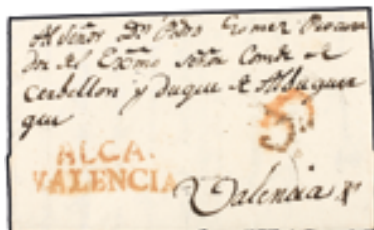 Al Señor Dn Pedro Gomez Procura
dor del Exmo Señor Conde de
Cerbellon y Duque de Alburquer
que
5
ALCA.
VALENCIA
Valencia